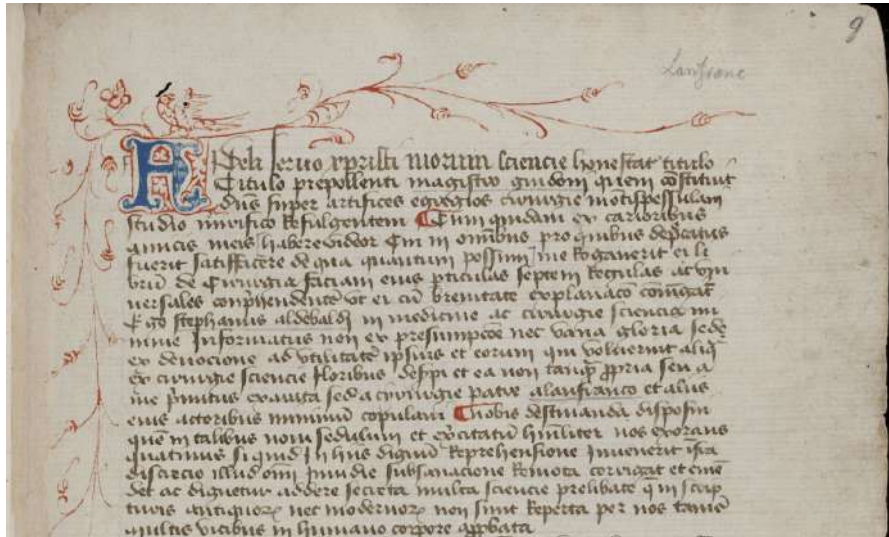 9
Lanfranc
Fideli servo xpristi morum sciencie honestat titulo
Titulo prepollenti magistro guidoni quem cōstituit
dn̄s super artifices egregios cirurgie motispessulani
studio mirifico Refulgentem Cum quidam ex carioribus
amicis meis habere videor Cui in omībus pro quibus dep̄catus
fuerit satisfficere de qua quantum possum me Rogaverit ei li
brū de Cirurgia faciam eius p̄ticulas septem Regulas ac vni
versales conp̄hendentē vt ei cū brevitate explanacōē
Ego stephanus aldebaldi in medicine ac cirurgie sciencia mi
nime Informatus non ex presumpcōe nec vana gloria sed
ex devocione ad vtilitatē ipsius et eorum qui voluerint aliq̄
ex cirurgie sciencie floribus et ea non tanq̄ p̄pria seu a
me p̄mitus sed a cirurgie patre alanfranco et aliis
eius actoribus copulavi Cnobis destinanda disposui
quē in talibus novi sedulum et ex̄citatū hūiliter nos exorans
quatinus si quid in hiis dignū Reprehensione Invenerit
discrecio illud om̄i Invidie subsanacione Remota corrigat et emē
det ac dignetur addere secreta multa sciencie prelibate q̄ in scrip
turis antiquorꝫ nec modernorꝫ non sunt Reperta per nos tamē
multis vicibus in humano corpore app̄bata